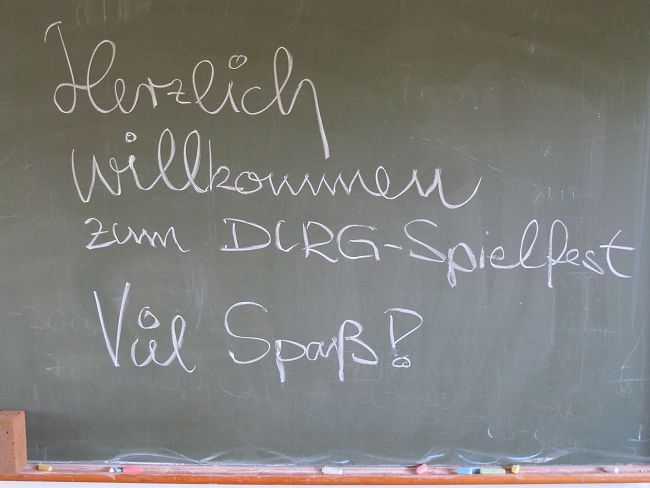 Herzlich
willkommen
zum DLRG-Spielfest
Viel Spaß!